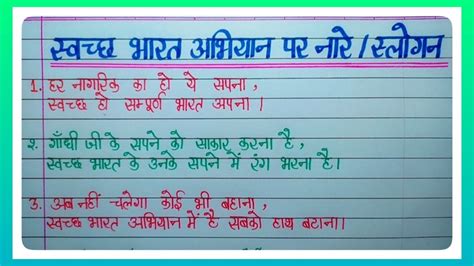 स्वच्छ भारत अभियान पर नारे / स्लोगन
1. हर नागरिक का हो ये सपना,
स्वच्छ हो सम्पूर्ण भारत अपना।
२. गाँधी जी के सपने को साकार करना है,
स्वच्छ भारत के उनके सपने में रंग भरना है।
3. अब नहीं चलेगा कोई भी बहाना,
स्वच्छ भारत अभियान में है सबको हाथ बटाना।